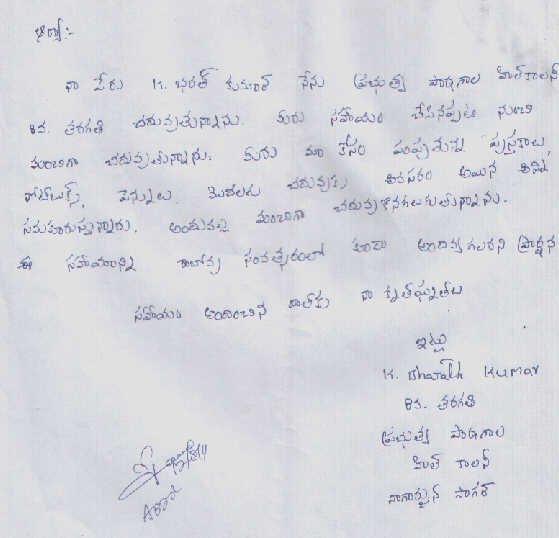 ఆర్యా:-
నా పేరు K. భరత్ కుమార్ నేను ప్రభుత్వ పాఠశాల హిల్ కాలనీ
8వ. తరగతి చదువుతున్నాను. మీరు సహాయం చేసినప్పటి నుంచి
మంచిగా చదువుతున్నాను. మీరు మా కోసం పంపుతున్న పుస్తకాలు,
నోట్‌బుక్స్, పెన్నులు, మొదలగు చదువుకు అవసరం అయిన అన్ని
సమకూరుస్తున్నారు. అందువల్ల మంచిగా చదువుకొనగలుగుతున్నాను.
ఈ సహాయాన్ని రాబోవు సంవత్సరంలో కూడా అందివ్వగలరని ప్రార్థన
సహాయం అందించిన దాతకు నా కృతజ్ఞతలు
ఇట్లు
K. Bharath Kumar
8వ. తరగతి
ప్రభుత్వ పాఠశాల
హిల్ కాలనీ
నాగార్జున సాగర్